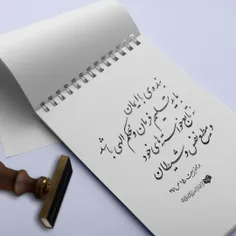 بنده‌ی با ایمان
باید تسلیم فرمان و حکم الهی باشد
نه تابع خواسته‌های خود
و مطیع نفس و شیطان